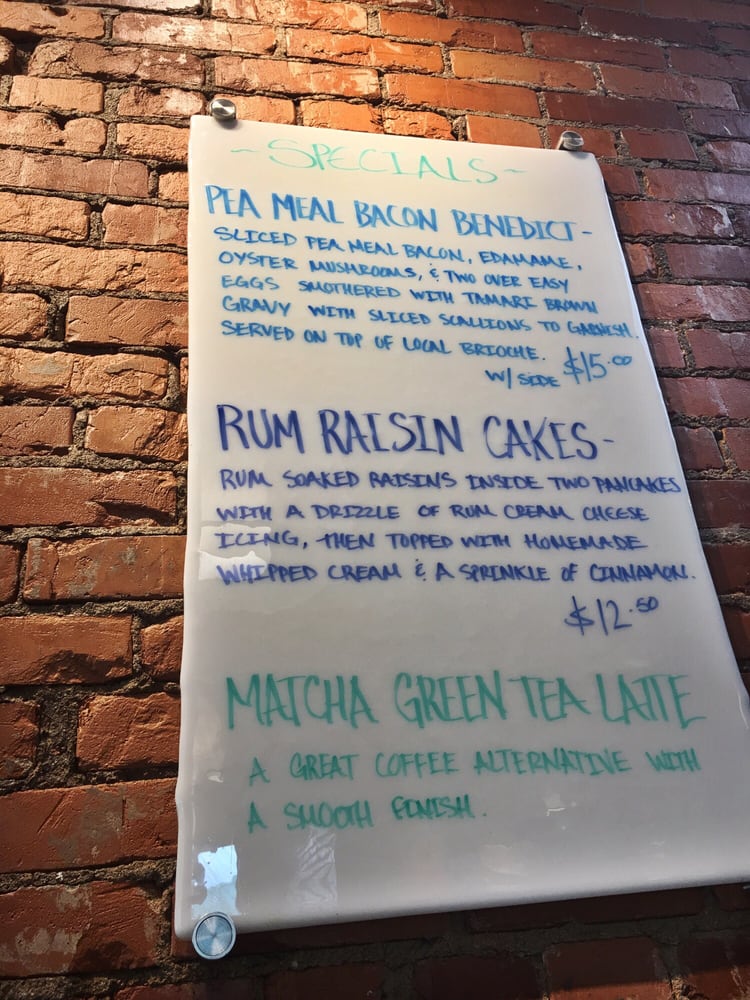 ~SPECIALS~
PEA MEAL BACON BENEDICT-
SLICED PEA MEAL BACON, EDAMAME,
OYSTER MUSHROOMS, & TWO OVER EASY
EGGS SMOTHERED WITH TAMARI BROWN
GRAVY WITH SLICED SCALLIONS TO GARNISH.
SERVED ON TOP OF LOCAL BRIOCHE.
W/ SIDE $15.00
RUM RAISIN CAKES-
RUM SOAKED RAISINS INSIDE TWO PANCAKES
WITH A DRIZZLE OF RUM CREAM CHEESE
ICING, THEN TOPPED WITH HOMEMADE
WHIPPED CREAM & A SPRINKLE OF CINNAMON.
$12.50
MATCHA GREEN TEA LATTE
A GREAT COFFEE ALTERNATIVE WITH
A SMOOTH FINISH.